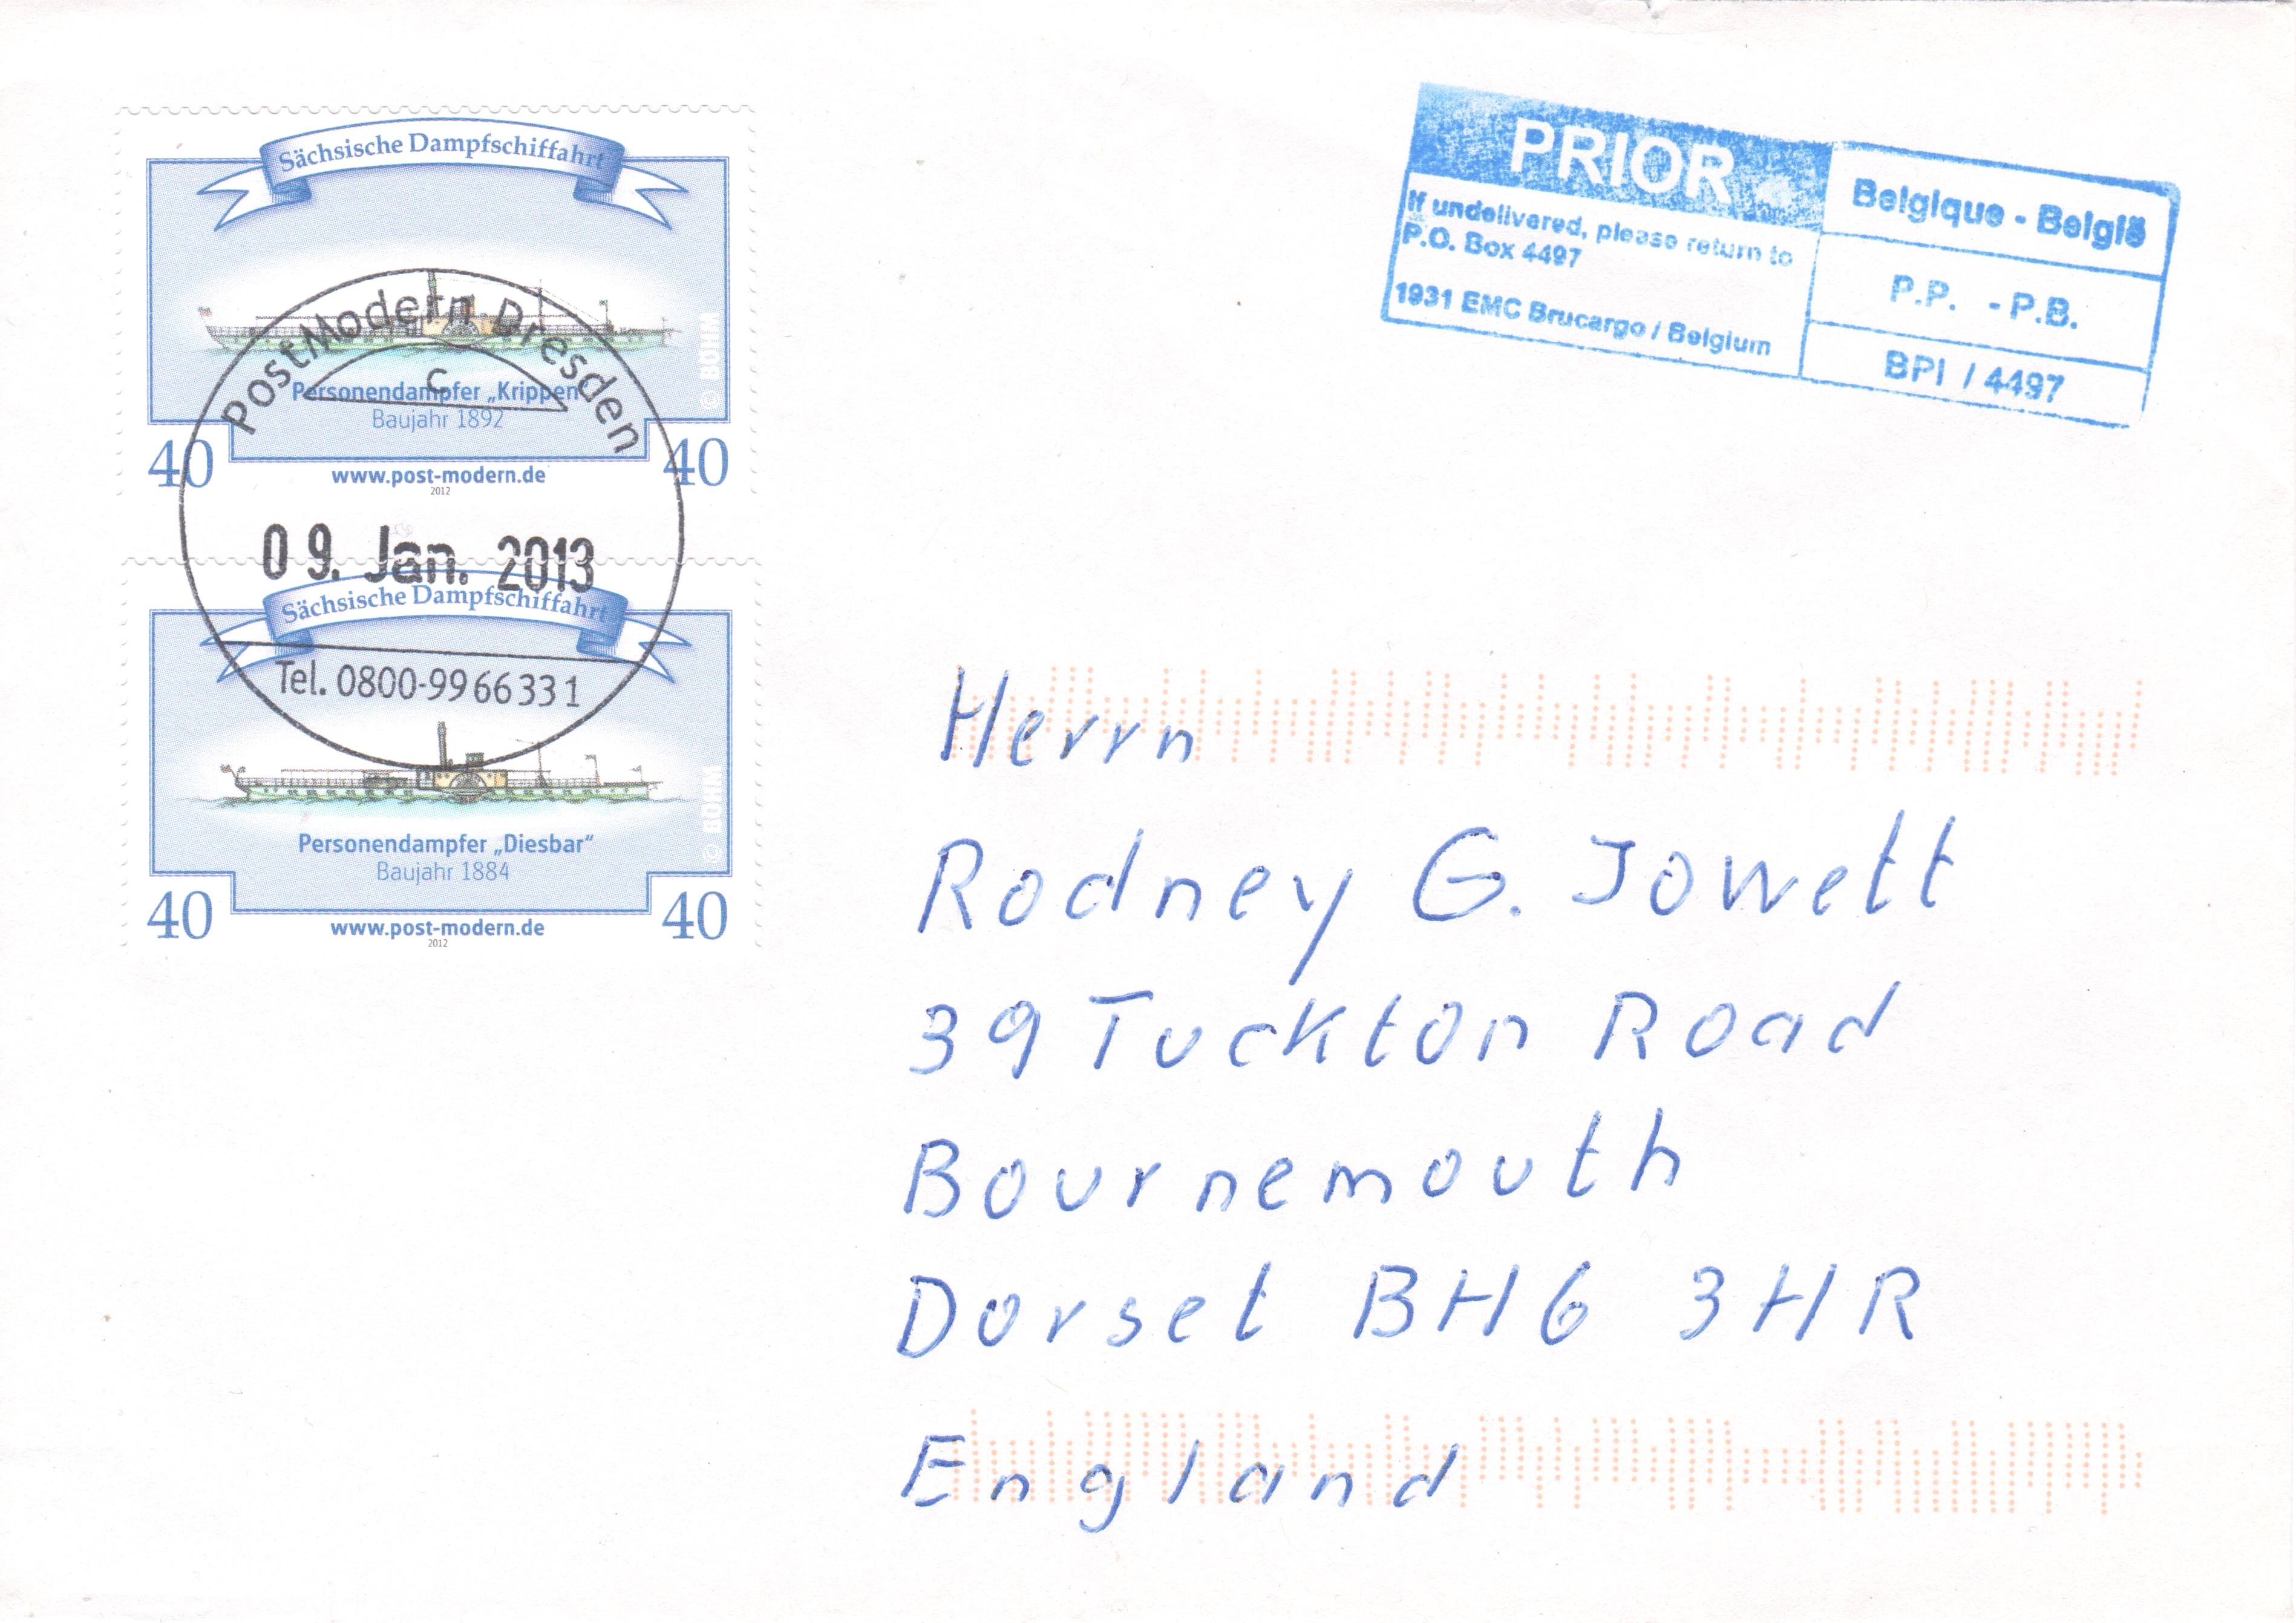 Sächsische Dampfschiffahrt
Personendampfer „Krippen“
Baujahr 1892
© BÖHM
40 40
www.post-modern.de
2012
PostModern Dresden
C
09. Jan. 2013
Tel. 0800-9966331
Sächsische Dampfschiffahrt
Personendampfer „Diesbar“
Baujahr 1884
© BÖHM
40 40
www.post-modern.de
2012
PRIOR
If undelivered, please return to
P.O. Box 4497
1931 EMC Brucargo / Belgium
Belgique - België
P.P. - P.B.
BPI / 4497
Herrn
Rodney G. Jowett
39 Tuckton Road
Bournemouth
Dorset BH6 3HR
England